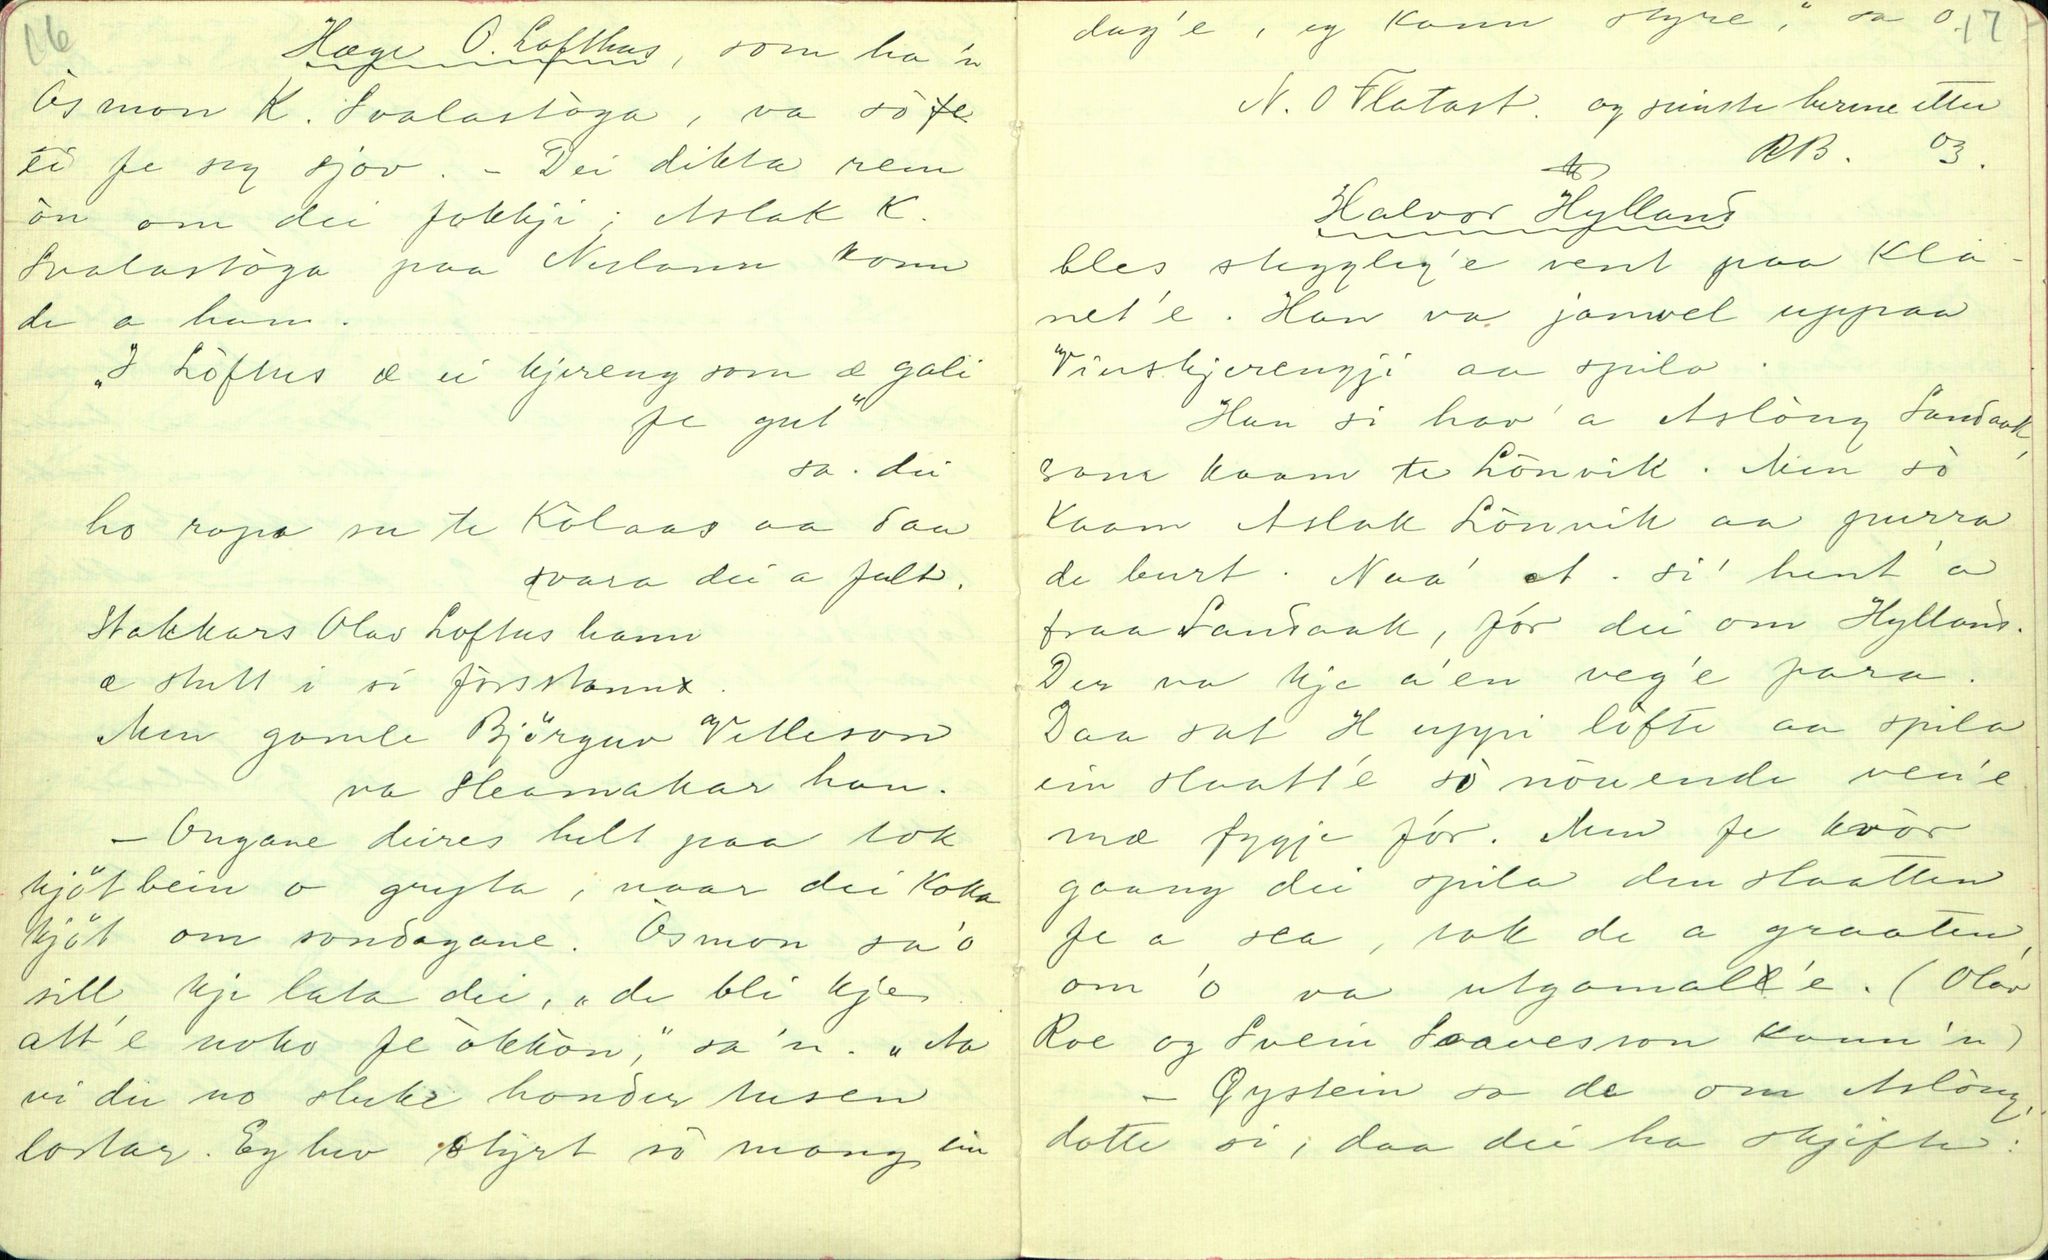 16
Hæge O. Lofthus, som ha 'n
Òsmon K. Svalastòga, va sò fe
ei fe seg sjøv. - Dei dikta rem
òn om dei fokkji; Aslak K.
Svalastòga paa Nislann konn
de a ham.
"I Lòftus æ ei kjereng som æ gali
fe gut"
sa. dei
ho ropa su te Kòlaas aa daa
svara dei a falt.
Stakkars Olav Loftus hann
æ stutt i si fòrsstann.
Men gomle Bjørguv Velleson
va Heamakar han.
- Ongane deires helt paa tok
kjøtbein o gryta, naar dei koka
kjøt om sondagane. Òsmon sa'o
sill kje lata dei, "de bli kje
att'e noko fe òkkòn," sa'n. "Aa
vi dei no sluke honder tusen
lortar. Eg hev styrt sò mang ein
17
dag'e, eg kann styre," sa o.
N. O Flatast. og sinste berrne etter
RB. 03.
Halvor Hylland
bles steggleg'e vent paa Kla-
net'e. Han va jamvel uppaa
Vinskjerengji aa spila.
Han si hav' a Aslòug Sandaak,
som kaam te Lònvik. Men sò
kaam Aslak Lònvik aa purra
de burt. Naa' et. si' hent'a
fraa Sandaak, fór dei om Hylland.
Der va kje a'en veg'e fara.
Daa sat H uppi lòfte aa spila
ein slaatt'e sò nòuende ven'e
mæ fygje fór. Men fe kvòr
gaang dei spila den slaatten
fe a sea, tok de a graaten,
om 'o va utgamall'e. (Olav
Roe og Svein Saavesson kann'n)
- Øystein sa de om Aslòug,
dotte si, daa dei ha skjifte: